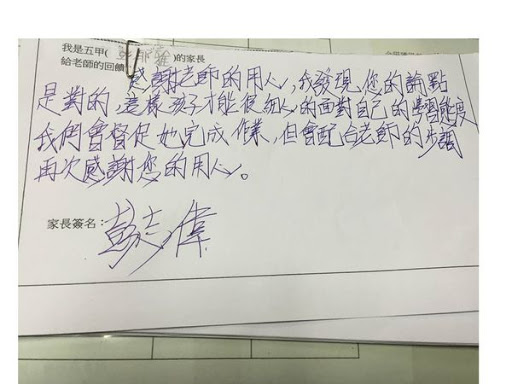 我是五甲( 彭 )的家長
給老師的回饋 感謝老師的用心,我發現您的論點
是對的,這樣孩子才能很細心的面對自己的學習態度
我們會督促她完成作業,但會配合老師的步調
再次感謝您的用心。
家長簽名:彭志偉